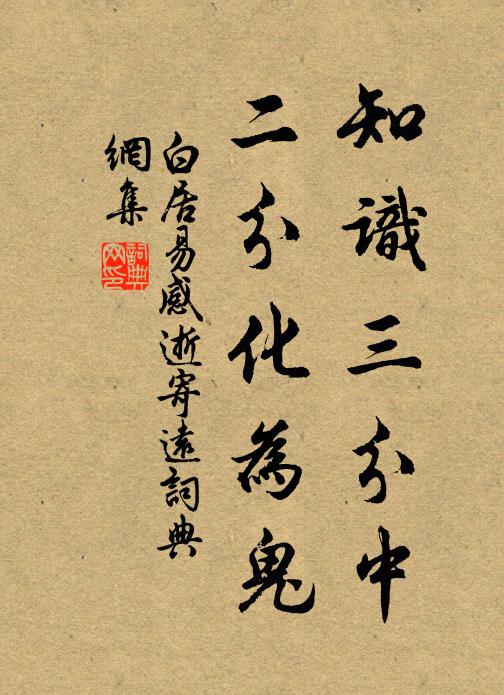 知識三分中
二分化為鬼
白居易感逝寄遠詞典
網集
詞典網印